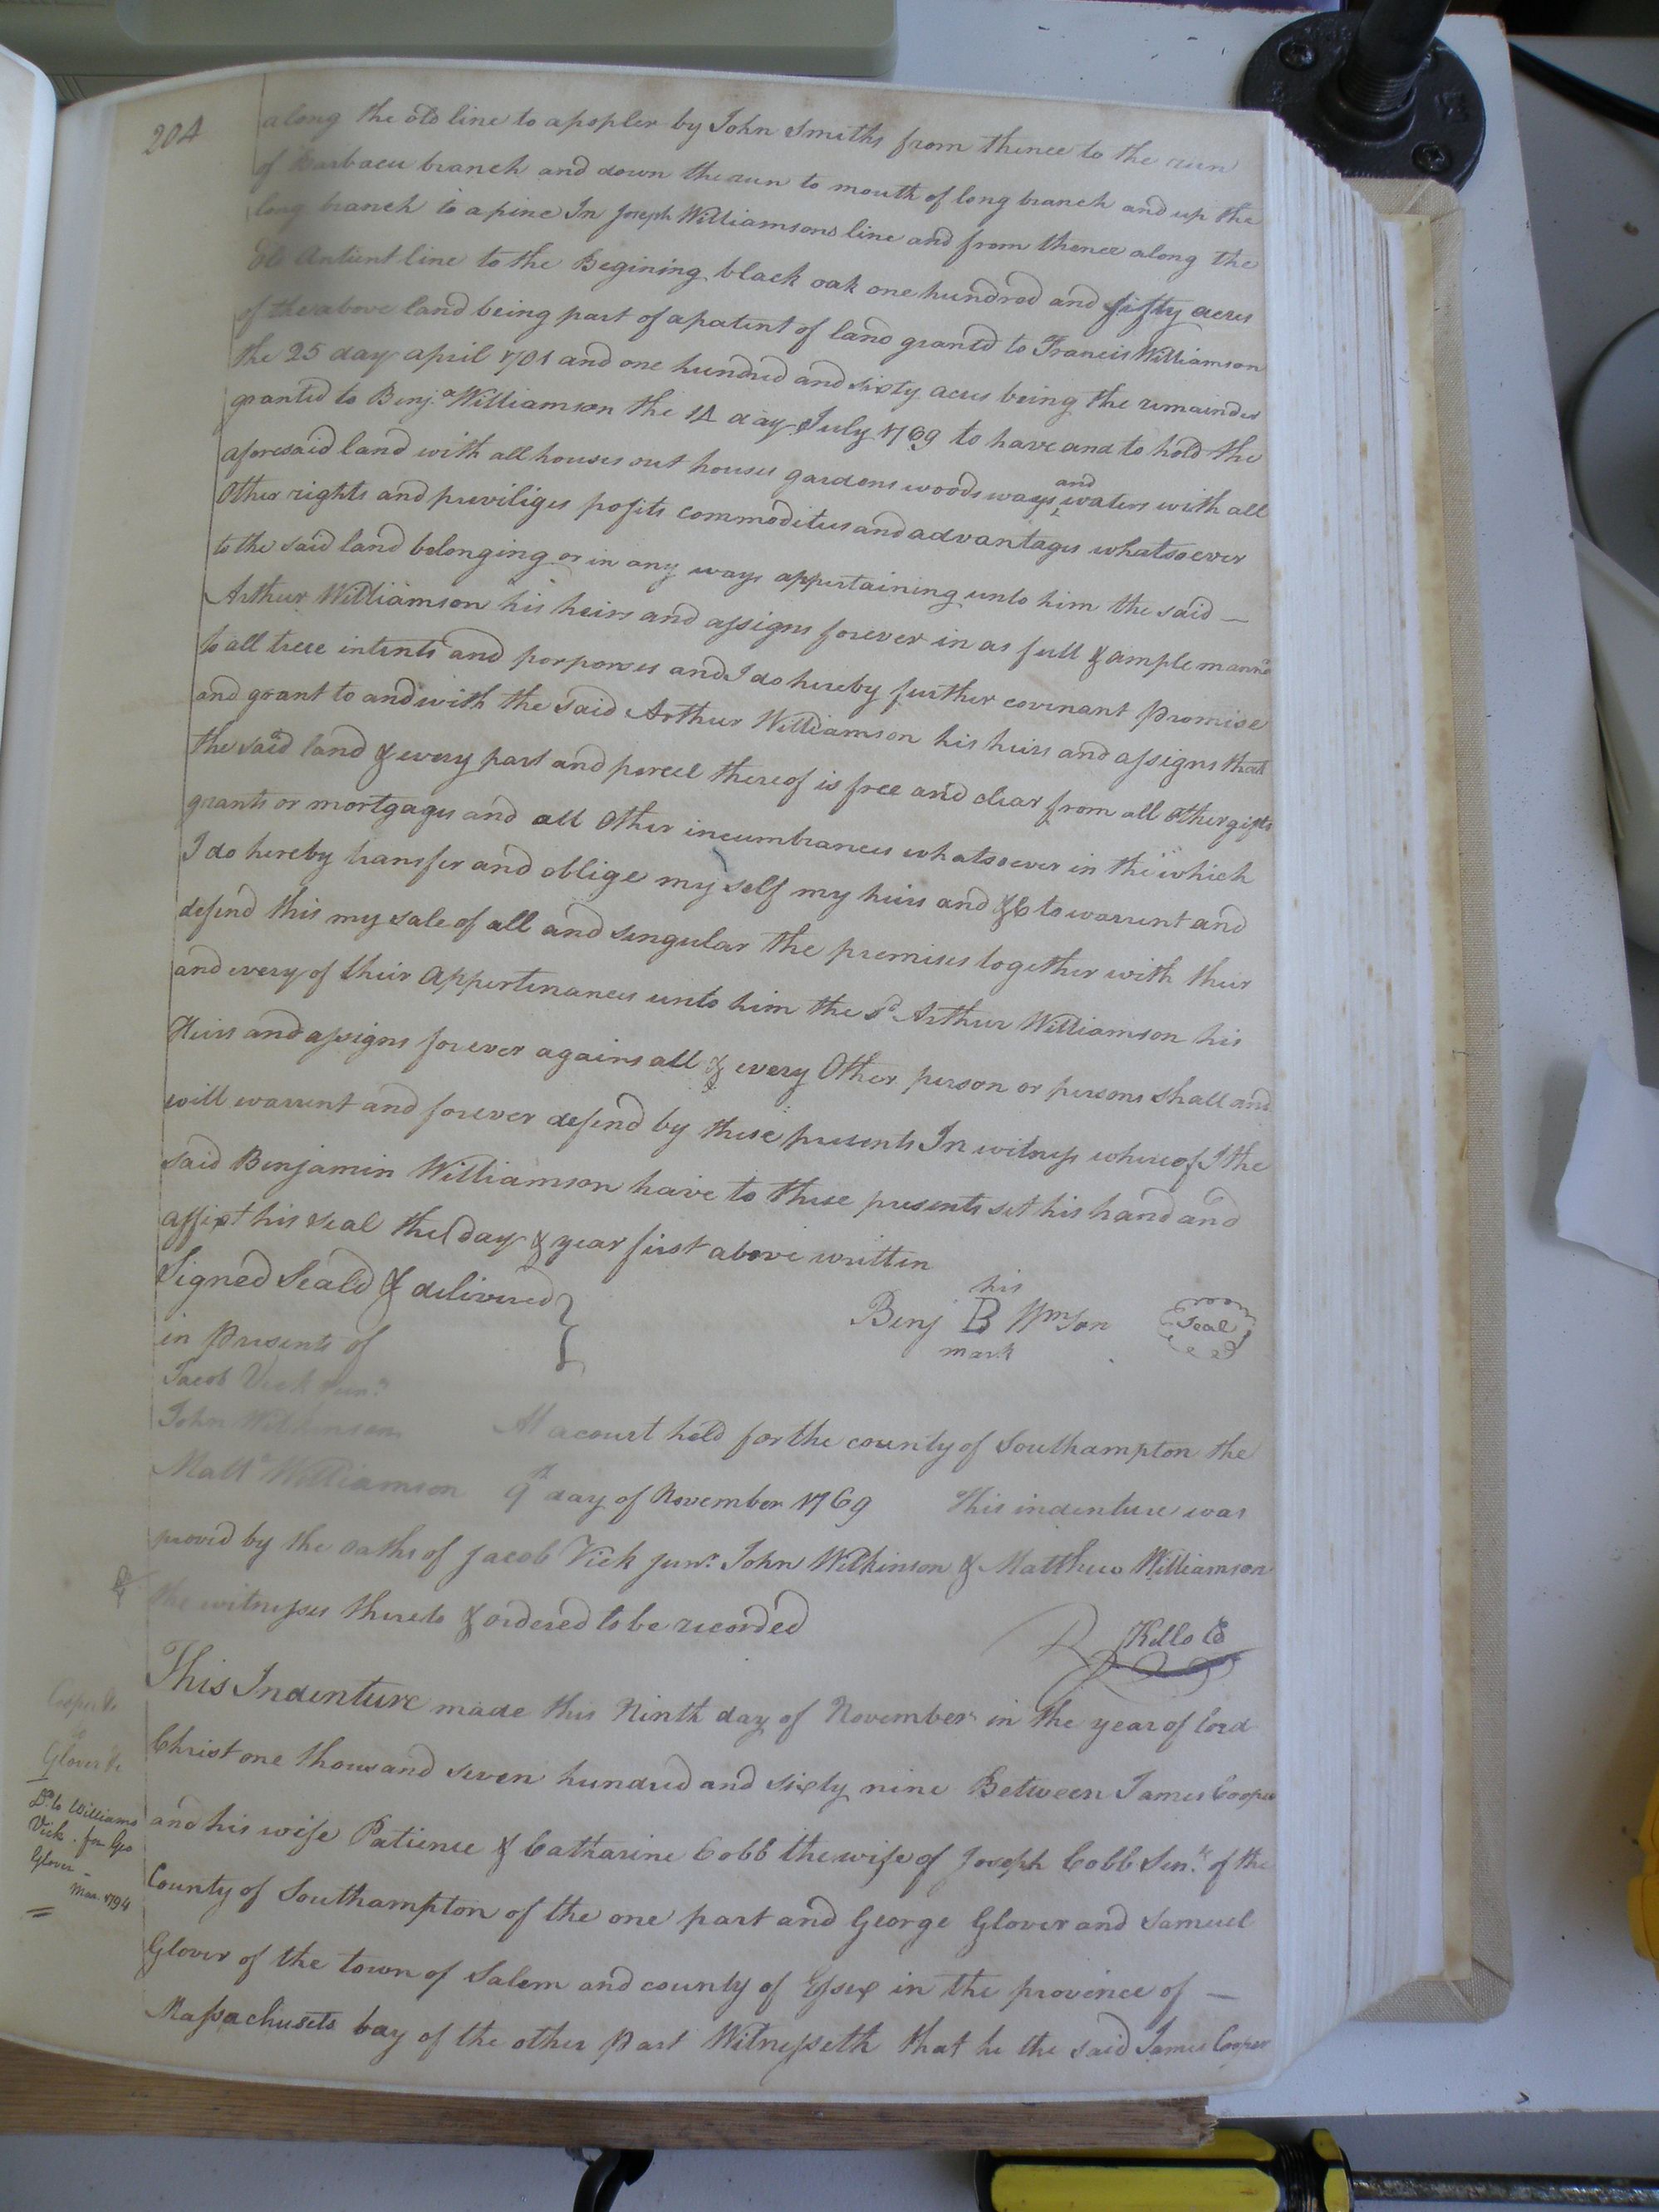 204
along the old line to a popler by John Smiths from thence to the run
of branch and down the run to mouth of long branch and up the
long branch to a pine In Joseph Williamsons line and from thence along the
old Antient line to the Begining black oak one hundred and fifty acres
of the above land being part of a patent of land grantd to Francis Williamson
the 25 day april 1701 and one hundred and sixty acres being the remainder
granted to Benj.a Williamson the 14 day July 1769 to have and to hold the
aforesaid land with all houses out houses gardens woods ways and waters with all
Other rights and previliges profits commoditus and advantages whatsoever
to the said land belonging or in any ways appertaining unto him the said —
Arthur Williamson his heirs and assigns forever in as full & ample mannr
to all trece intents and porposes and I do hereby further covinant promise
and grant to and with the said Arthur Williamson his heirs and assigns that
the said land & every part and parcel thereof is free and clear from all other gifts
grants or mortgages and all Other incumbrances whatsoever in the which
I do hereby transfer and oblige my self my heirs and &c to warrent and
defend this my sale of all and singular the premises together with their
and every of their Appertinances unto him the sd. Arthur Williamson his
Heirs and assigns forever agains all & every Other person or persons shall and
will warrent and forever defend by these presents In witness whereof I the
said Benjamin Williamson have to these presents set his hand and
affixt his seal the day & year first above written
Signed Seald & delivered
in Presents of
his
Benj B Wmson Seal
mark
Jacob Vick Junr.
John Wilkinson At a court held for the county of Southampton the
Matt Williamson 9th day of November 1769 This indenture was
proved by the oaths of Jacob Vick junr. John Wilkinson & Matthew Williamson
the witnesses thereto & ordered to be recorded
R Kello
This Indenture made this Ninth day of November in the year of lord
Christ one thousand seven hundred and sixty nine Between James Cooper
and his wife Patience & Catharine Cobb the wife of Joseph Cobb Senr. of the
County of Southampton of the one part and George Glover and Samuel
Glover of the town of Salem and county of Essex in the province of —
Massachusets bay of the other part Witnesseth that he the said James Cooper
Cooper &c
to
Glover &c
Dd. to Williams
Vick. for Geo
Glover —
Mar. 1794